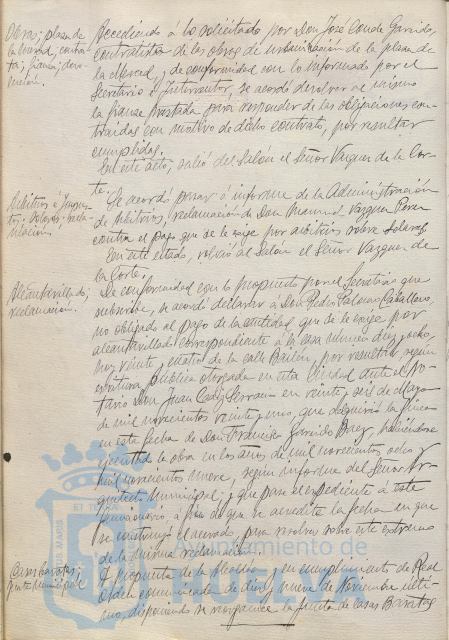 Obra; plaza de
la Merced, contra-
ta; fianza; devo-
lución.
Accediendo á lo solicitado por Don José Conde Garrido,
contratista de las obras de urbanización de la plaza de
la Merced, y de conformidad con lo informado por el
Secretario é Interventor, se acordó devolver al mismo
la fianza prestada para responder de las obligaciones con-
traidas con motivo de dicho contrato, por resultar
cumplidas.
En este acto, salió del Salón el Señor Vazquez de la Cor-
te.
Arbitrios é Impues-
tos; solares; recla-
mación.
Se acordó pasar á informe de la Administración
de Arbitrios, reclamación de Don Manuel Vazquez Perez
contra el pago que se le exige por arbitrios sobre solares.
En este estado, volvió al Salón el Señor Vazquez de
la Corte.
Alcantarillado;
reclamación.
De conformidad con lo propuesto por el Secretario que
subscribe, se acordó declarar á Don Pedro Caballero,
no obligado al pago de la cantidad que se le exige por
alcantarillado correspondiente á la casa número diez y ocho,
hoy veinte y cuatro de la calle Bailén, por resultar, según
escritura pública otorgada en esta Ciudad ante el No-
tario Don Juan Cadiz Serrano en veinte y seis de Mayo
de mil novecientos veinte y uno, que adquirió la finca
en esta fecha de Don Francisco Garrido Perez, habiéndose
ejecutado la obra en los años de mil novecientos ocho y
mil novecientos nueve, según informe del Señor Ar-
quitecto Municipal; y que pase el expediente á este
funcionario, á fin de que se acredite la fecha en que
se construyó el acerado, para resolver sobre este extremo
de la misma reclamación.
Casas baratas;
Junta Municipal
A propuesta de la Alcaldía y en cumplimiento de Real
Orden comunicada de diez y nueve de Noviembre últi-
mo, disponiendo se reorganice la Junta de Casas Baratas
Ayuntamiento de
HUELVA